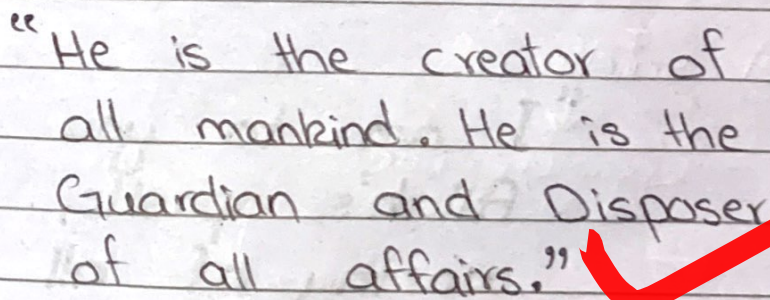 “He is the creator of
all mankind. He is the
Guardian and Disposer
of all affairs.”